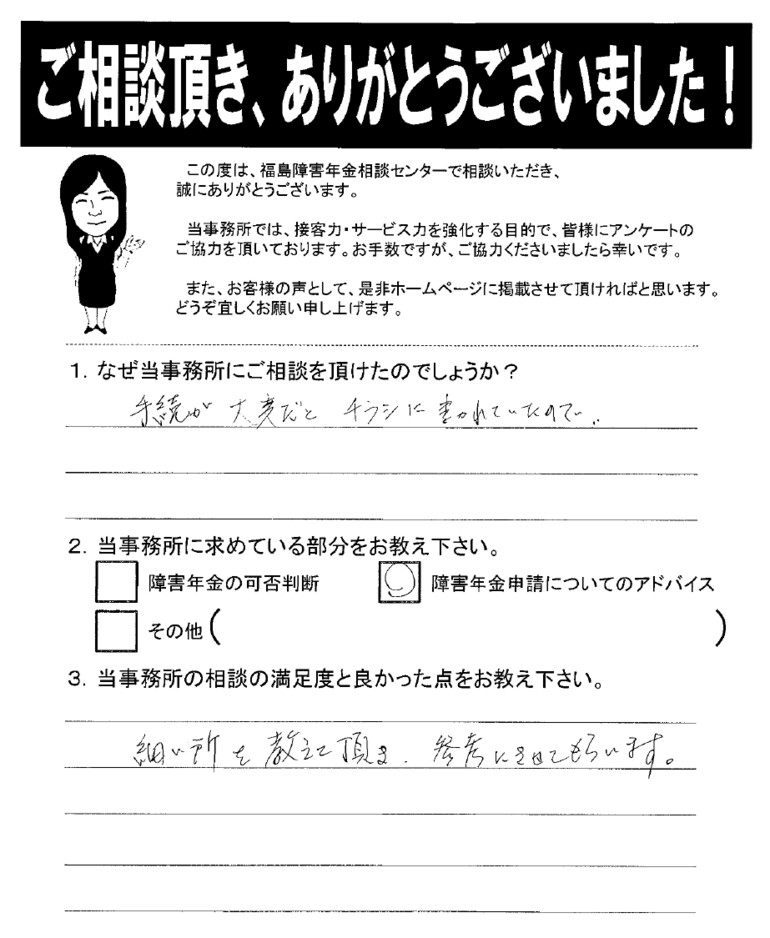 ご相談頂き、ありがとうございました！
この度は、福島障害年金相談センターで相談いただき、
誠にありがとうございます。
当事務所では、接客力・サービス力を強化する目的で、皆様にアンケートの
ご協力を頂いております。お手数ですが、ご協力くださいましたら幸いです。
また、お客様の声として、是非ホームページに掲載させて頂ければと思います。
どうぞ宜しくお願い申し上げます。
1. なぜ当事務所にご相談を頂けたのでしょうか？
手続が大変だと チラシに書かれていたので、
2. 当事務所に求めている部分をお教え下さい。
障害年金の可否判断 障害年金申請についてのアドバイス
その他（ ）
3. 当事務所の相談の満足度と良かった点をお教え下さい。
細い所を教えて頂き、参考にさせてもらいます。